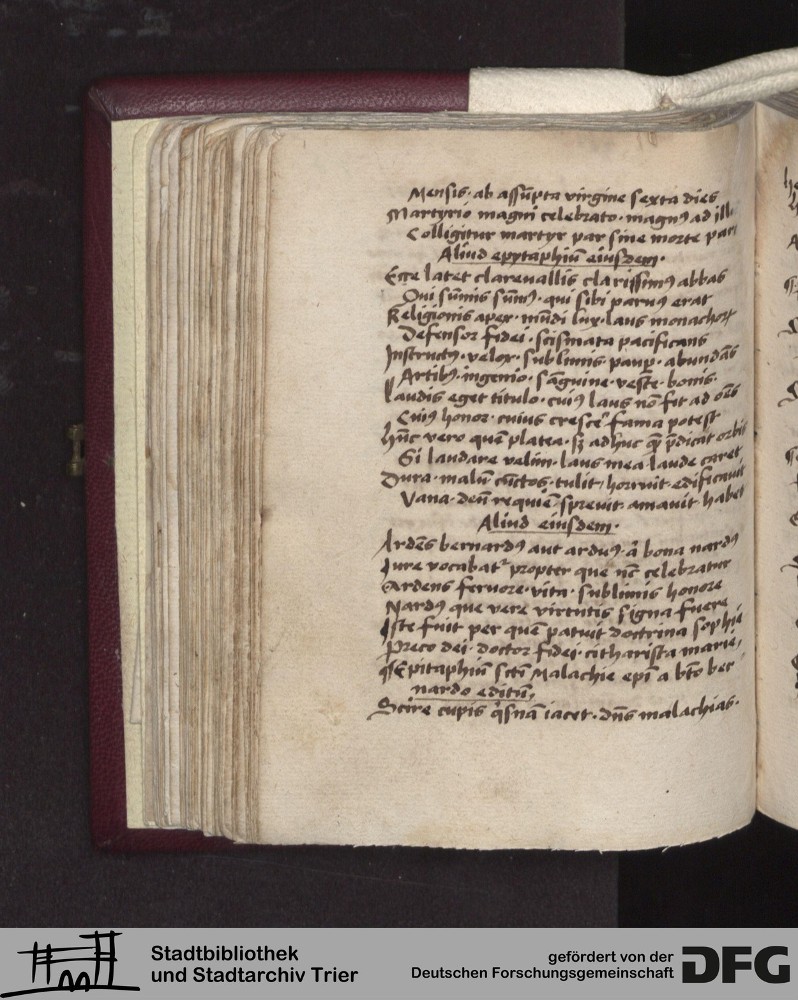 Mensis · ab assūpta virgine sexta dies
Martyrio magni celebrato · magnꝰ ad
Colligitur martyr par sine morte
Aliud epytaphiū eiusdem ·
Ecce latet clarevallis clarissimꝰ abbas
Qui sūmis sūmꝰ · qui sibi parvus erat
Religionis apex · mūdi lux · laus monachoꝝ
Defensor fidei · scismata pacificans
Instructꝰ · velox · sublimis · paup̄ · abundās
Artibꝰ · ingenio · sāguine · veste · bonis ·
Laudis eget titulo · cuiꝰ laus nō fit ad
Cuiꝰ honor · cuius crescē fama potest
Hūc vero quē platea · sꝫ adhuc p̄dicat orbis
Si laudare velim · laus mea laude caret ·
Dura · malū cūctos · tulit · horruit · edificavit
Vana · deū requiē sprevit · amavit habet
Aliud eiusdem ·
Ardēs bernardꝰ aut arduꝰ · a bona nardꝰ
Iure vocabatᷣ propter que nc̄ celebratur
Ardens fervore · vita · sublimis honore
Nardꝰ que vere virtutis signa fuere
Iste fuit per quē patuit doctrina sophie
Preco dei · doctor fidei · citharista marie ·
¶ Epitaphiū sctī Malachie epī a btō ber
nardo editū ·
Scire cupis q̄snā iacet · dn̄s malachias ·
Stadtbibliothek
und Stadtarchiv Trier
gefördert von der
Deutschen Forschungsgemeinschaft
DFG